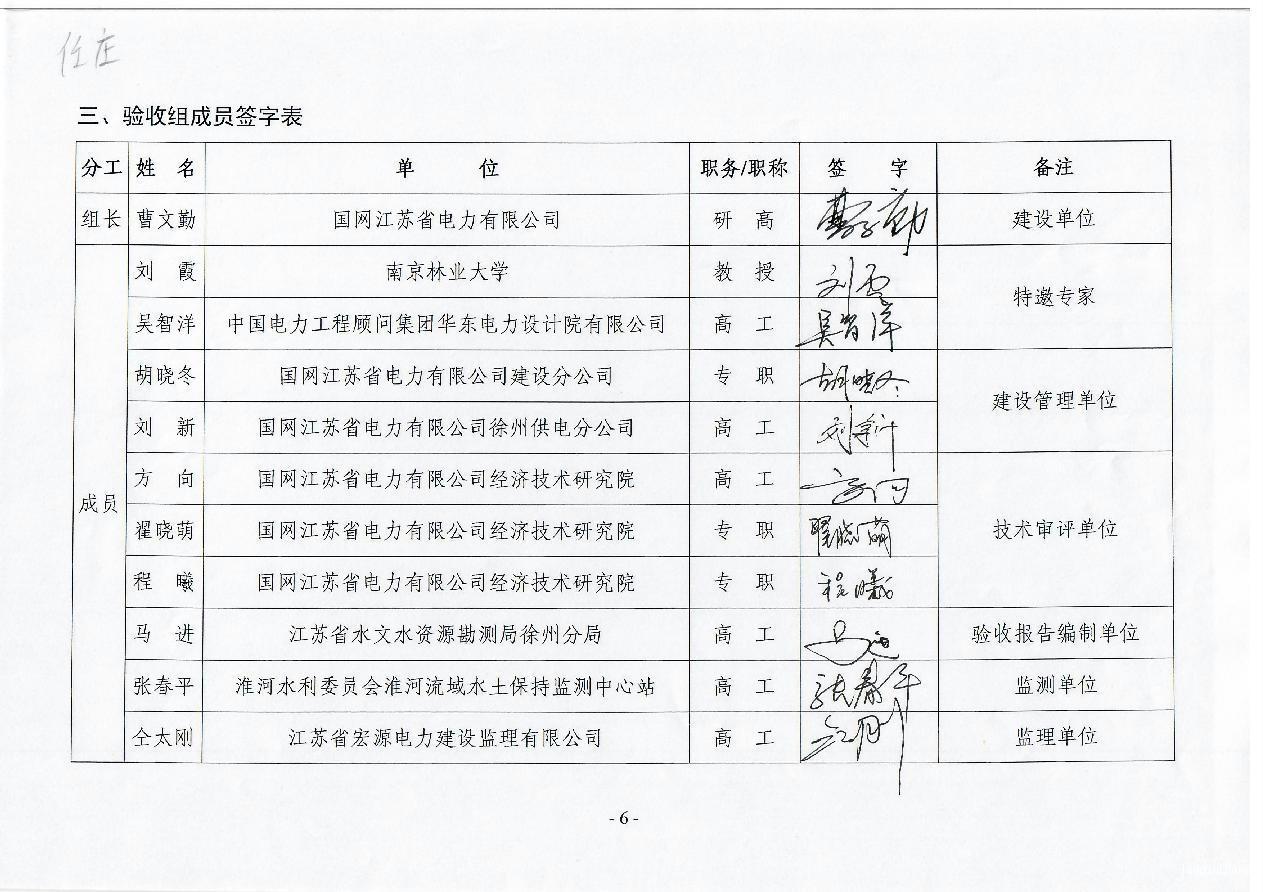 任庄
三、验收组成员签字表
分工 姓 名 单 位 职务/职称 签 字 备注
组长 曹文勤 国网江苏省电力有限公司 研 高 曹文勤 建设单位
成员
刘 霞 南京林业大学 教 授 刘霞
特邀专家
吴智洋 中国电力工程顾问集团华东电力设计院有限公司 高 工 吴智洋
胡晓冬 国网江苏省电力有限公司建设分公司 专 职 胡晓冬
建设管理单位
刘 新 国网江苏省电力有限公司徐州供电分公司 高 工 刘新
方 向 国网江苏省电力有限公司经济技术研究院 高 工 方向
翟晓萌 国网江苏省电力有限公司经济技术研究院 专 职 翟晓萌 技术审评单位
程 曦 国网江苏省电力有限公司经济技术研究院 专 职 程曦
马 进 江苏省水文水资源勘测局徐州分局 高 工 马进 验收报告编制单位
张春平 淮河水利委员会淮河流域水土保持监测中心站 高 工 张春平 监测单位
仝太刚 江苏省宏源电力建设监理有限公司 高 工 监理单位
- 6 -